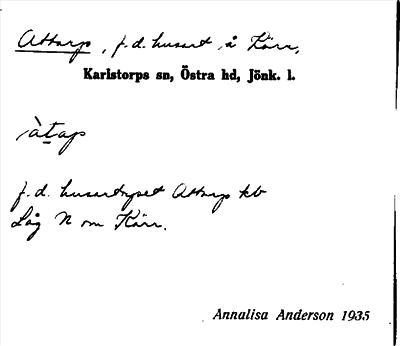 Attarp, f.d. husart, å Kärr,
Karlstorps sn, Östra hd, Jönk. l.
àtap
f.d. husartorpet Attarp kb
Låg N om Kärr.
Annalisa Anderson 1935